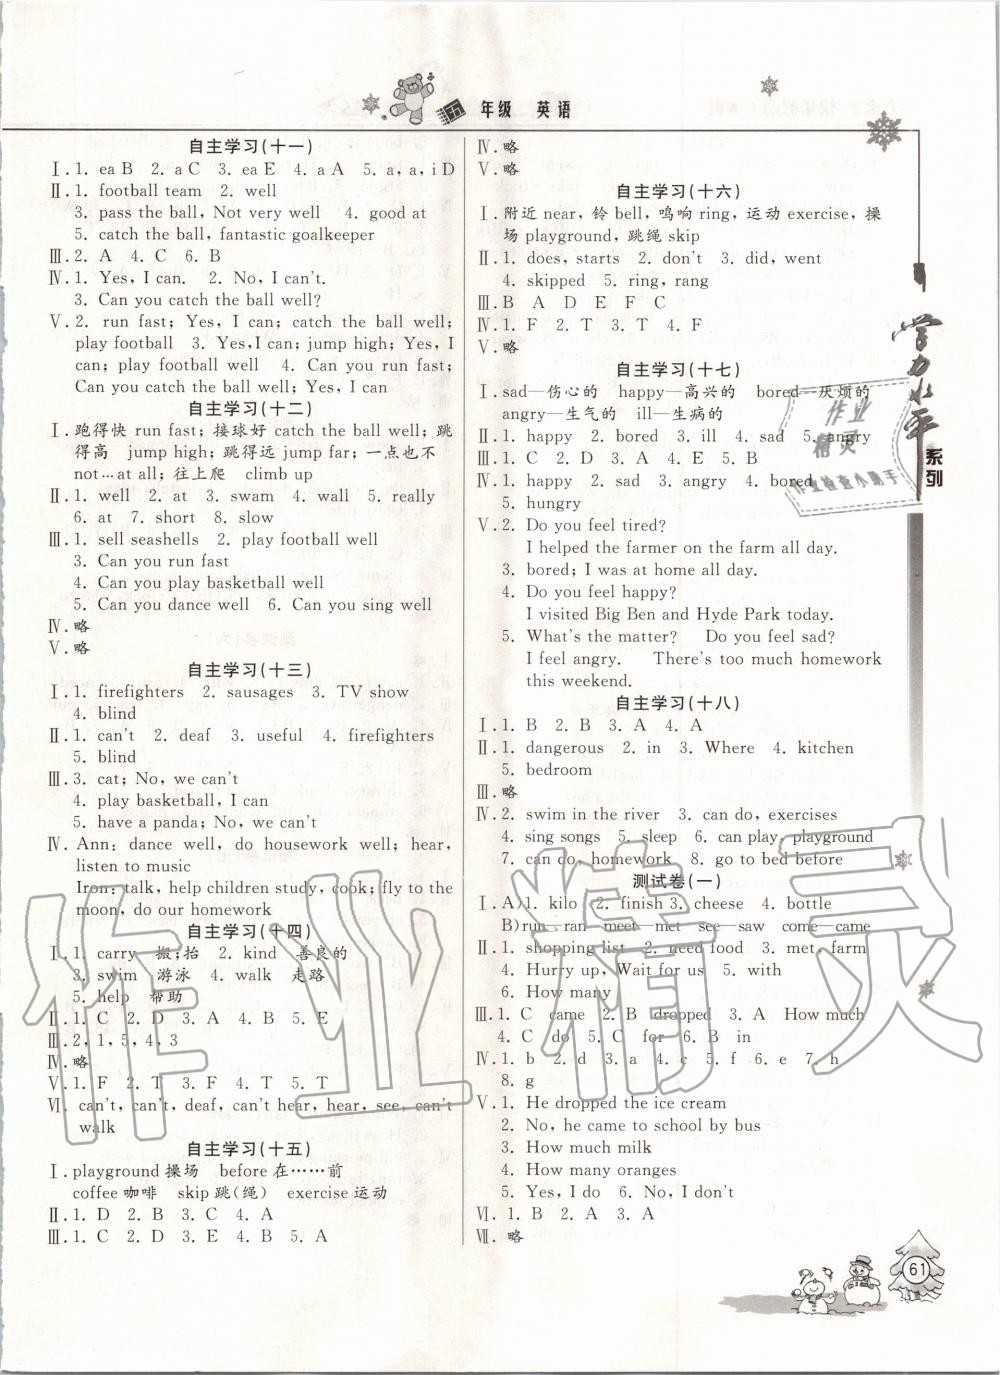 五 年级 英语
自主学习(十一)
Ⅰ.1. ea B 2. a C 3. ea E 4. a A 5. a, a, i D
Ⅱ.1. football team 2. well
3. pass the ball, Not very well 4. good at
5. catch the ball, fantastic goalkeeper
Ⅲ.2. A 4. C 6. B
Ⅳ.1. Yes, I can. 2. No, I can't.
3. Can you catch the ball well?
Ⅴ.2. run fast; Yes, I can; catch the ball well;
play football 3. Yes, I can; jump high; Yes, I
can; play football well 4. Can you run fast;
Can you catch the ball well; Yes, I can
自主学习(十二)
Ⅰ.跑得快 run fast; 接球好 catch the ball well; 跳
得高 jump high; 跳得远 jump far; 一点也不
not…at all; 往上爬 climb up
Ⅱ.1. well 2. at 3. swam 4. wall 5. really
6. at 7. short 8. slow
Ⅲ.1. sell seashells 2. play football well
3. Can you run fast
4. Can you play basketball well
5. Can you dance well 6. Can you sing well
Ⅳ.略
Ⅴ.略
自主学习(十三)
Ⅰ.1. firefighters 2. sausages 3. TV show
4. blind
Ⅱ.1. can't 2. deaf 3. useful 4. firefighters
5. blind
Ⅲ.3. cat; No, we can't
4. play basketball, I can
5. have a panda; No, we can't
Ⅳ. Ann: dance well, do housework well; hear,
listen to music
Iron: talk, help children study, cook; fly to the
moon, do our homework
自主学习(十四)
Ⅰ.1. carry 搬;抬 2. kind 善良的
3. swim 游泳 4. walk 走路
5. help 帮助
Ⅱ.1. C 2. D 3. A 4. B 5. E
Ⅲ.2, 1, 5, 4, 3
Ⅳ.略
Ⅴ.1. F 2. T 3. F 4. T 5. T
Ⅵ. can't, can't, deaf, can't hear, hear, see, can't
walk
自主学习(十五)
Ⅰ.playground 操场 before 在……前
coffee 咖啡 skip 跳(绳) exercise 运动
Ⅱ.1. D 2. B 3. C 4. A
Ⅲ.1. C 2. D 3. E 4. B 5. A
Ⅳ.略
Ⅴ.略
自主学习(十六)
Ⅰ.附近 near, 铃 bell, 鸣响 ring, 运动 exercise, 操
场 playground, 跳绳 skip
Ⅱ.1. does, starts 2. don't 3. did, went
4. skipped 5. ring, rang
Ⅲ.B A D E F C
Ⅳ.1. F 2. T 3. T 4. F
Ⅴ.略
自主学习(十七)
Ⅰ.sad—伤心的 happy—高兴的 bored—厌烦的
angry—生气的 ill—生病的
Ⅱ.1. happy 2. bored 3. ill 4. sad 5. angry
Ⅲ.1. C 2. D 3. A 4. E 5. B
Ⅳ.1. happy 2. sad 3. angry 4. bored
5. hungry
Ⅴ.2. Do you feel tired?
I helped the farmer on the farm all day.
3. bored; I was at home all day.
4. Do you feel happy?
I visited Big Ben and Hyde Park today.
5. What's the matter? Do you feel sad?
I feel angry. There's too much homework
this weekend.
自主学习(十八)
Ⅰ.1. B 2. B 3. A 4. A
Ⅱ.1. dangerous 2. in 3. Where 4. kitchen
5. bedroom
Ⅲ.略
Ⅳ.2. swim in the river 3. can do, exercises
4. sing songs 5. sleep 6. can play, playground
7. can do, homework 8. go to bed before
测试卷(一)
Ⅰ.A)1. kilo 2. finish 3. cheese 4. bottle
B)run—ran meet—met see—saw come—came
Ⅱ.1. shopping list 2. need food 3. met, farm
4. Hurry up, Wait for us 5. with
6. How many
Ⅲ.1. C came 2. B dropped 3. A How much
4. C do 5. C for 6. B in
Ⅳ.1. b 2. d 3. a 4. c 5. f 6. e 7. h
8. g
Ⅴ.1. He dropped the ice cream
2. No, he came to school by bus
3. How much milk
4. How many oranges
5. Yes, I do 6. No, I don't
Ⅵ.1. B 2. A 3. A
Ⅶ.略
学力水平
系列
作业
精灵
作业检查小助手
作业精灵
61